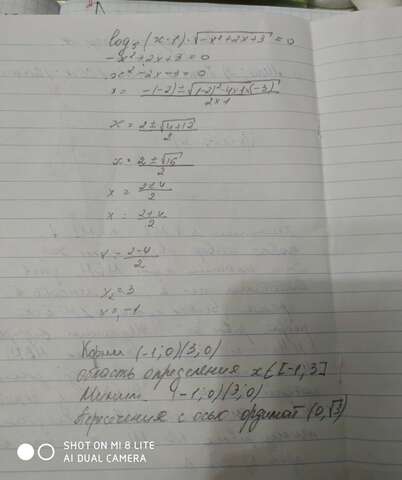 log₅(x-1)·√(-x²+2x+3)=0
-x²+2x+3=0
x²-2x-3=0
x = (-(-2)±√((-2)²-4·1·(-3)))/(2×1)
x = (2±√(4+12))/2
x = (2±√16)/2
x = (2±4)/2
x = (2+4)/2
x = (2-4)/2
x₂=3
x₁=-1
Корни (-1;0)(3;0)
область определения x∈[-1;3]
(-1;0)(3;0)
Пересечения с осью ординат (0,√3)
SHOT ON MI 8 LITE
AI DUAL CAMERA